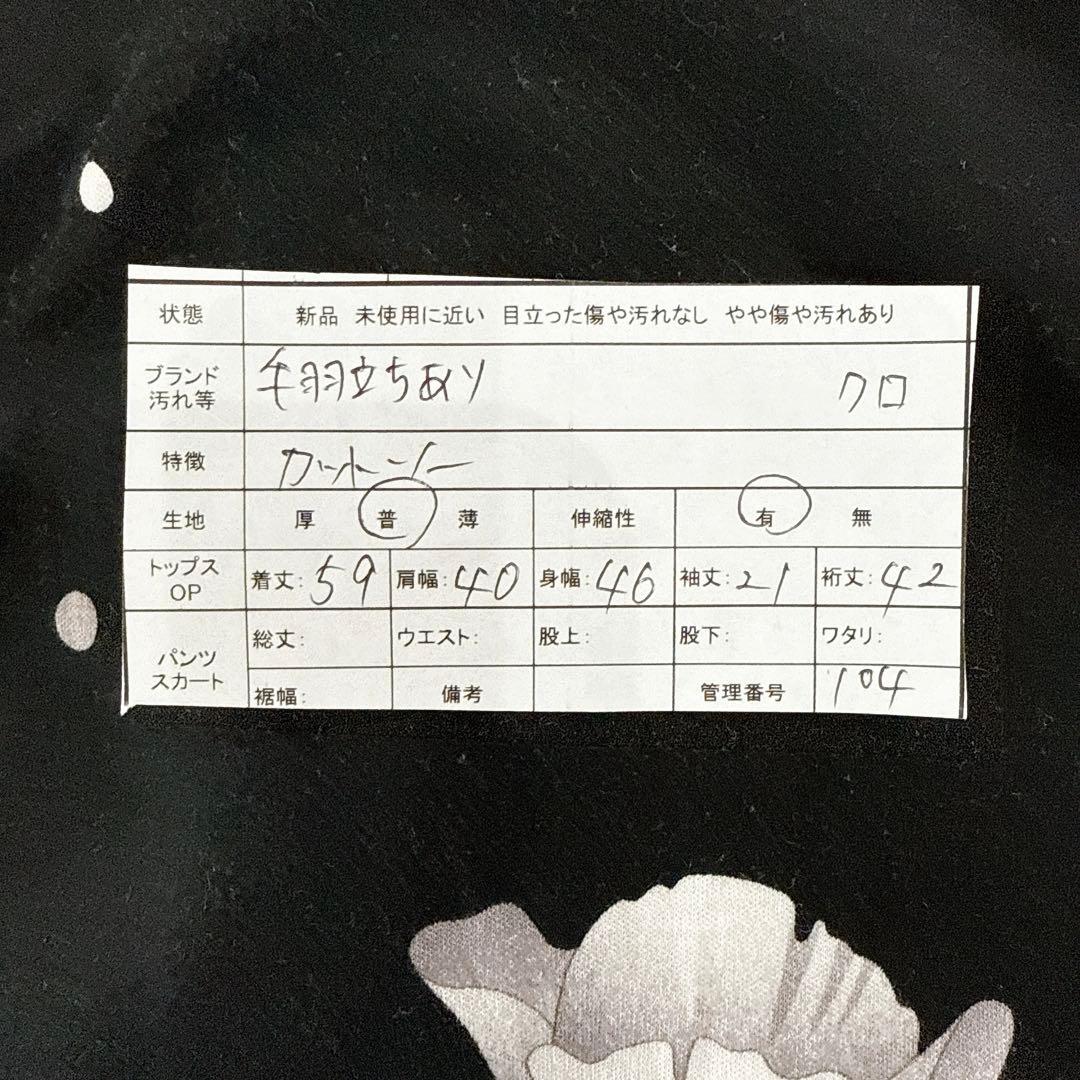 状態 新品 未使用に近い 目立った傷や汚れなし やや傷や汚れあり
ブランド 汚れ等 毛羽立ちあり クロ
特徴 カットソー
生地 厚 普 薄 伸縮性 有 無
トップス OP 着丈:59 肩幅:40 身幅:46 袖丈:21 裄丈:42
パンツ スカート 総丈: ウエスト: 股上: 股下: ワタリ:
裾幅: 備考 管理番号 104